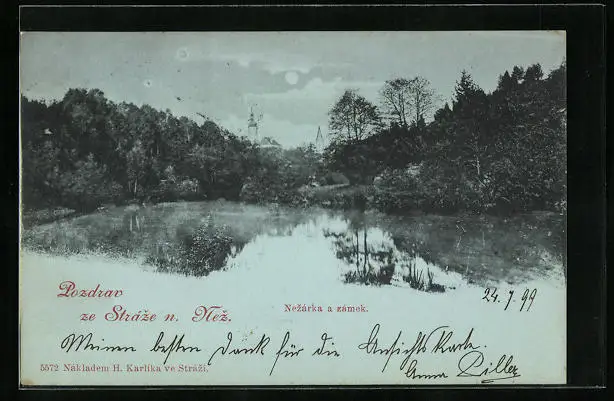 Pozdrav
ze Stráže n. Než.
Nežárka a zámek.
24. 7. 99
Meinen besten Dank für die Ansichts Karte.
Anna Piller
5572 Nákladem H. Karlíka ve Stráži.